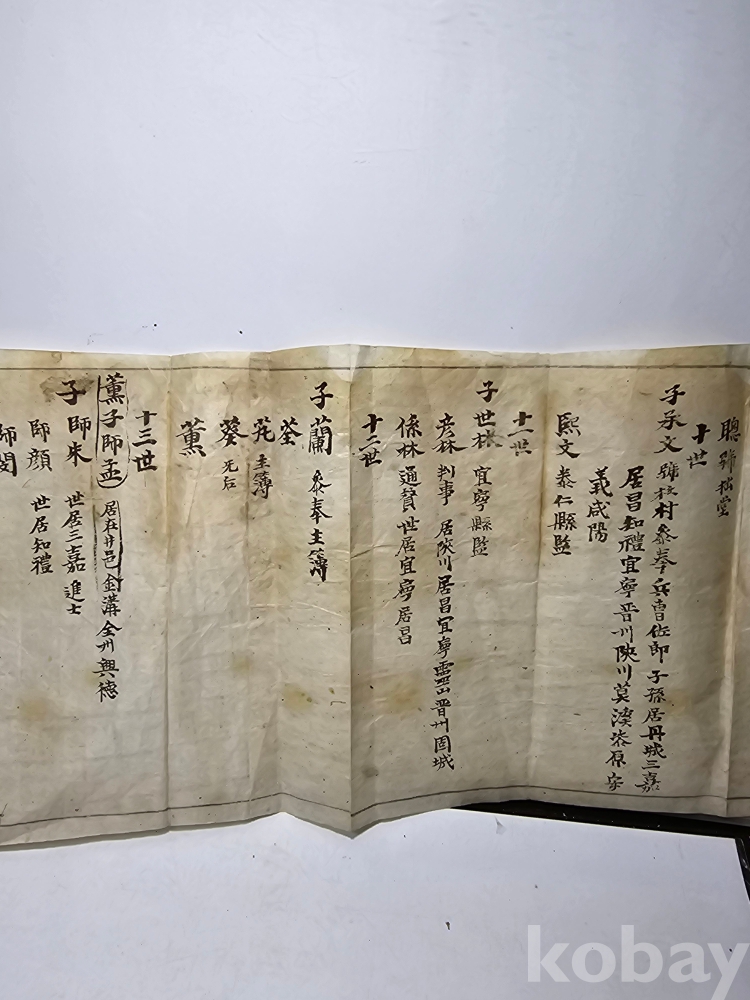 聰 號松堂
十世
子承文 號枝村 叅奉 兵曹佐郎 子孫居丹城三嘉
居昌知禮宜寧晋川陜川莫溪柒原安
義咸陽
熙文 泰仁縣監
十一世
子世林 宜寧縣監
彦林 判事 居陜川居昌宜寧靈山晋州固城
係林 通贊 世居宜寧居昌
十二世
子蘭 叅奉主簿
荃
芼 主簿
葵 无后
薰
十三世
薰子師孟 居在井邑 金溝 全州 興德
子師朱 世居三嘉 進士
師顔 世居知禮
師閔
kobay